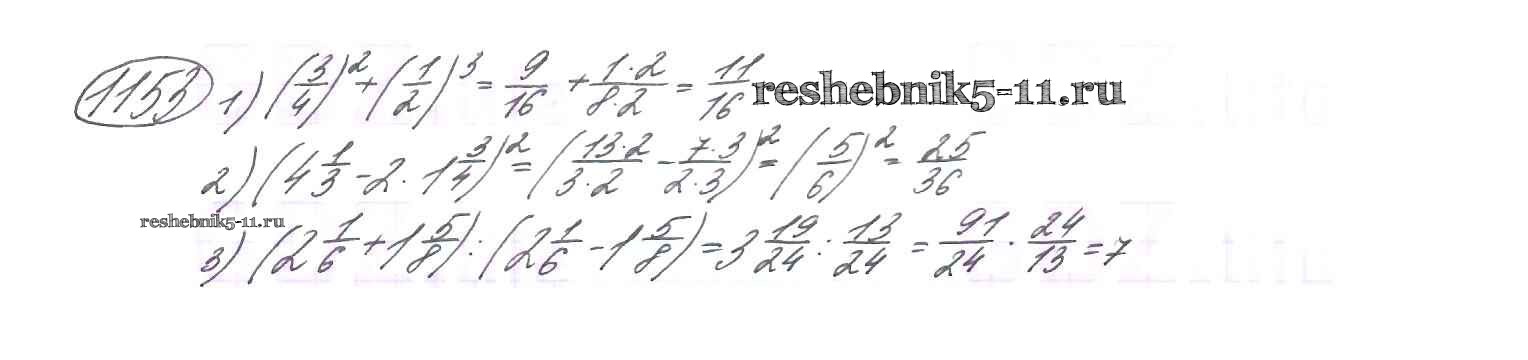 1153 1) (3/4)² + (1/2)³ = 9/16 + 1·2/8·2 = 11/16 reshebnik5-11.ru
2) (4 1/3 - 2 · 1 3/4)² = (13·2/3·2 - 7·3/2·3)² = (5/6)² = 25/36
reshebnik5-11.ru
3) (2 1/6 + 1 5/8) : (2 1/6 - 1 5/8) = 3 19/24 : 13/24 = 91/24 · 24/13 = 7